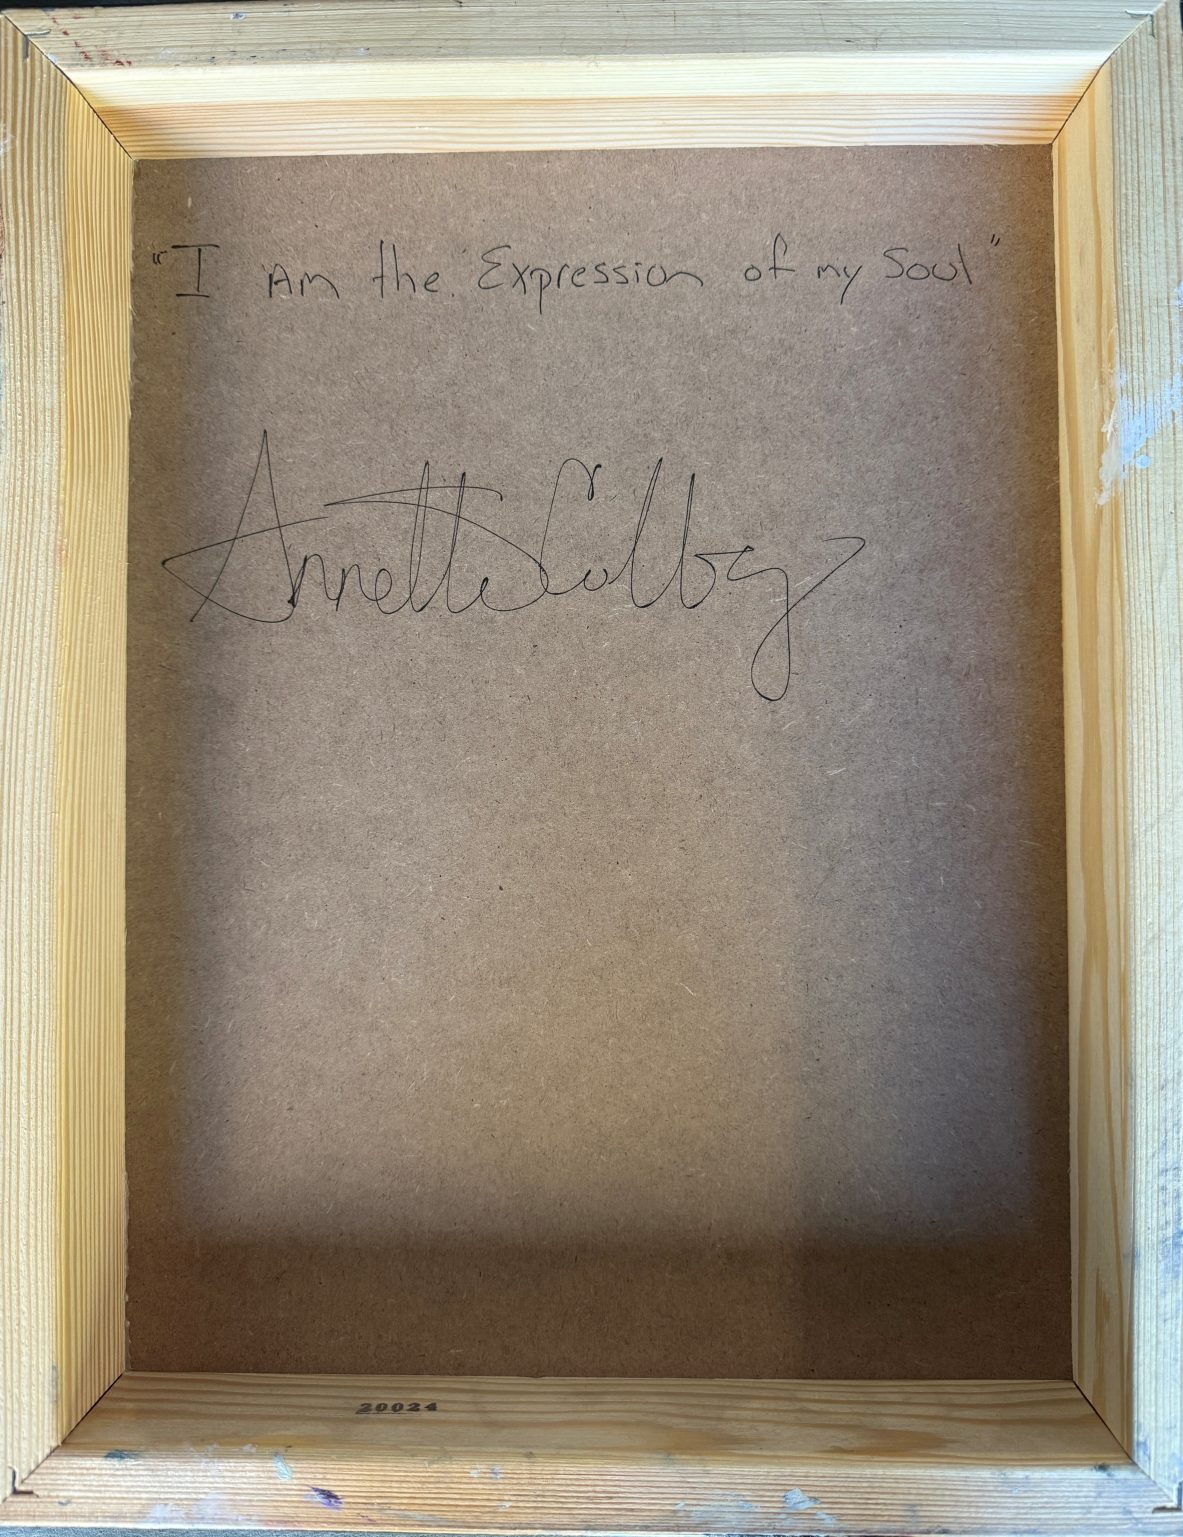 "I Am the Expression of my Soul"
Annette Colby
20024